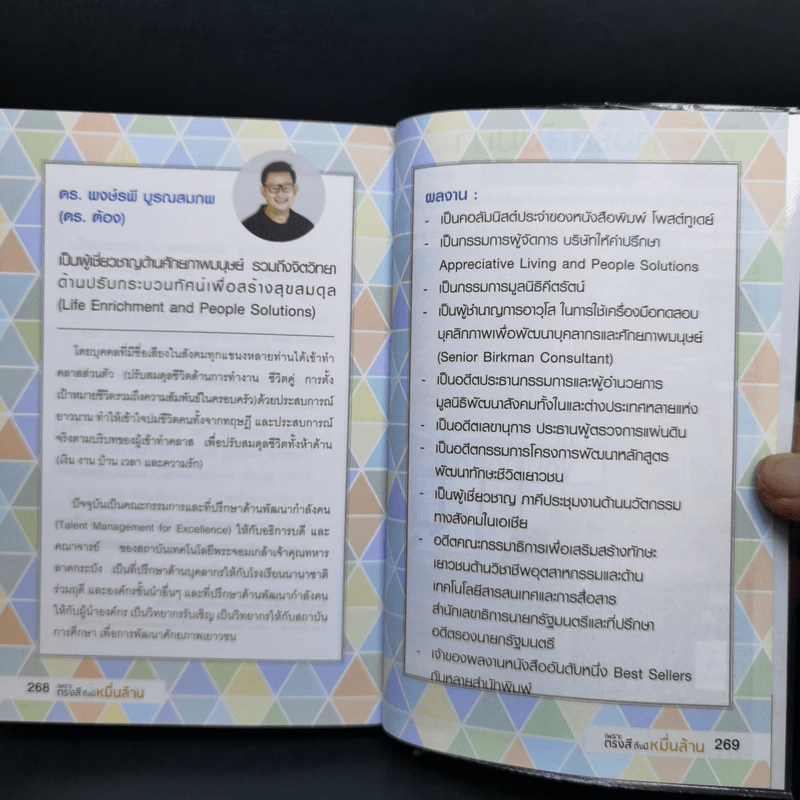 ดร. พงษ์รพี บูรณสมภพ
(ดร. ต้อง)
เป็นผู้เชี่ยวชาญด้านศักยภาพมนุษย์ รวมถึงจิตวิทยา
ด้านปรับกระบวนทัศน์เพื่อสร้างสุขสมดุล
(Life Enrichment and People Solutions)
โดยบุคคลที่มีชื่อเสียงในสังคมทุกแขนงหลายท่านได้เข้าทำ
คลาสส่วนตัว (ปรับสมดุลชีวิตด้านการทำงาน ชีวิตคู่ การตั้ง
เป้าหมายชีวิตรวมถึงความสัมพันธ์ในครอบครัว)ด้วยประสบการณ์
ยาวนาน ทำให้เข้าใจปมชีวิตคนทั้งจากทฤษฎี และประสบการณ์
จริงตามบริบทของผู้เข้าทำคลาส เพื่อปรับสมดุลชีวิตทั้งห้าด้าน
(เงิน งาน บ้าน เวลา และความรัก)
ปัจจุบันเป็นคณะกรรมการและที่ปรึกษาด้านพัฒนากำลังคน
(Talent Management for Excellence) ให้กับอธิการบดี และ
คณาจารย์ ของสถาบันเทคโนโลยีพระจอมเกล้าเจ้าคุณทหาร
ลาดกระบัง เป็นที่ปรึกษาด้านบุคลากรให้กับโรงเรียนนานาชาติ
ร่วมฤดี และองค์กรชั้นนำอื่นๆ และที่ปรึกษาด้านพัฒนากำลังคน
ให้กับผู้นำองค์กร เป็นวิทยากรรับเชิญ เป็นวิทยากรให้กับสถาบัน
การศึกษา เพื่อการพัฒนาศักยภาพเยาวชน
268 เพราะตรงสี ถึงมีหมื่นล้าน
ผลงาน :
- เป็นคอลัมนิสต์ประจำของหนังสือพิมพ์ โพสต์ทูเดย์
- เป็นกรรมการผู้จัดการ บริษัทให้คำปรึกษา
Appreciative Living and People Solutions
- เป็นกรรมการมูลนิธิคีตรัตน์
- เป็นผู้ชำนาญการอาวุโส ในการใช้เครื่องมือทดสอบ
บุคลิกภาพเพื่อพัฒนาบุคลากรและศักยภาพมนุษย์
(Senior Birkman Consultant)
- เป็นอดีตประธานกรรมการและผู้อำนวยการ
มูลนิธิพัฒนาสังคมทั้งในและต่างประเทศหลายแห่ง
- เป็นอดีตเลขานุการ ประธานผู้ตรวจการแผ่นดิน
- เป็นอดีตกรรมการโครงการพัฒนาหลักสูตร
พัฒนาทักษะชีวิตเยาวชน
- เป็นผู้เชี่ยวชาญ ภาคีประชุมงานด้านนวัตกรรม
ทางสังคมในเอเชีย
- อดีตคณะกรรมาธิการเพื่อเสริมสร้างทักษะ
เยาวชนด้านวิชาชีพอุตสาหกรรมและด้าน
เทคโนโลยีสารสนเทศและการสื่อสาร
สำนักเลขาธิการนายกรัฐมนตรีและที่ปรึกษา
อดีตรองนายกรัฐมนตรี
- เจ้าของผลงานหนังสืออันดับหนึ่ง Best Sellers
กับหลายสำนักพิมพ์
เพราะตรงสี ถึงมีหมื่นล้าน 269